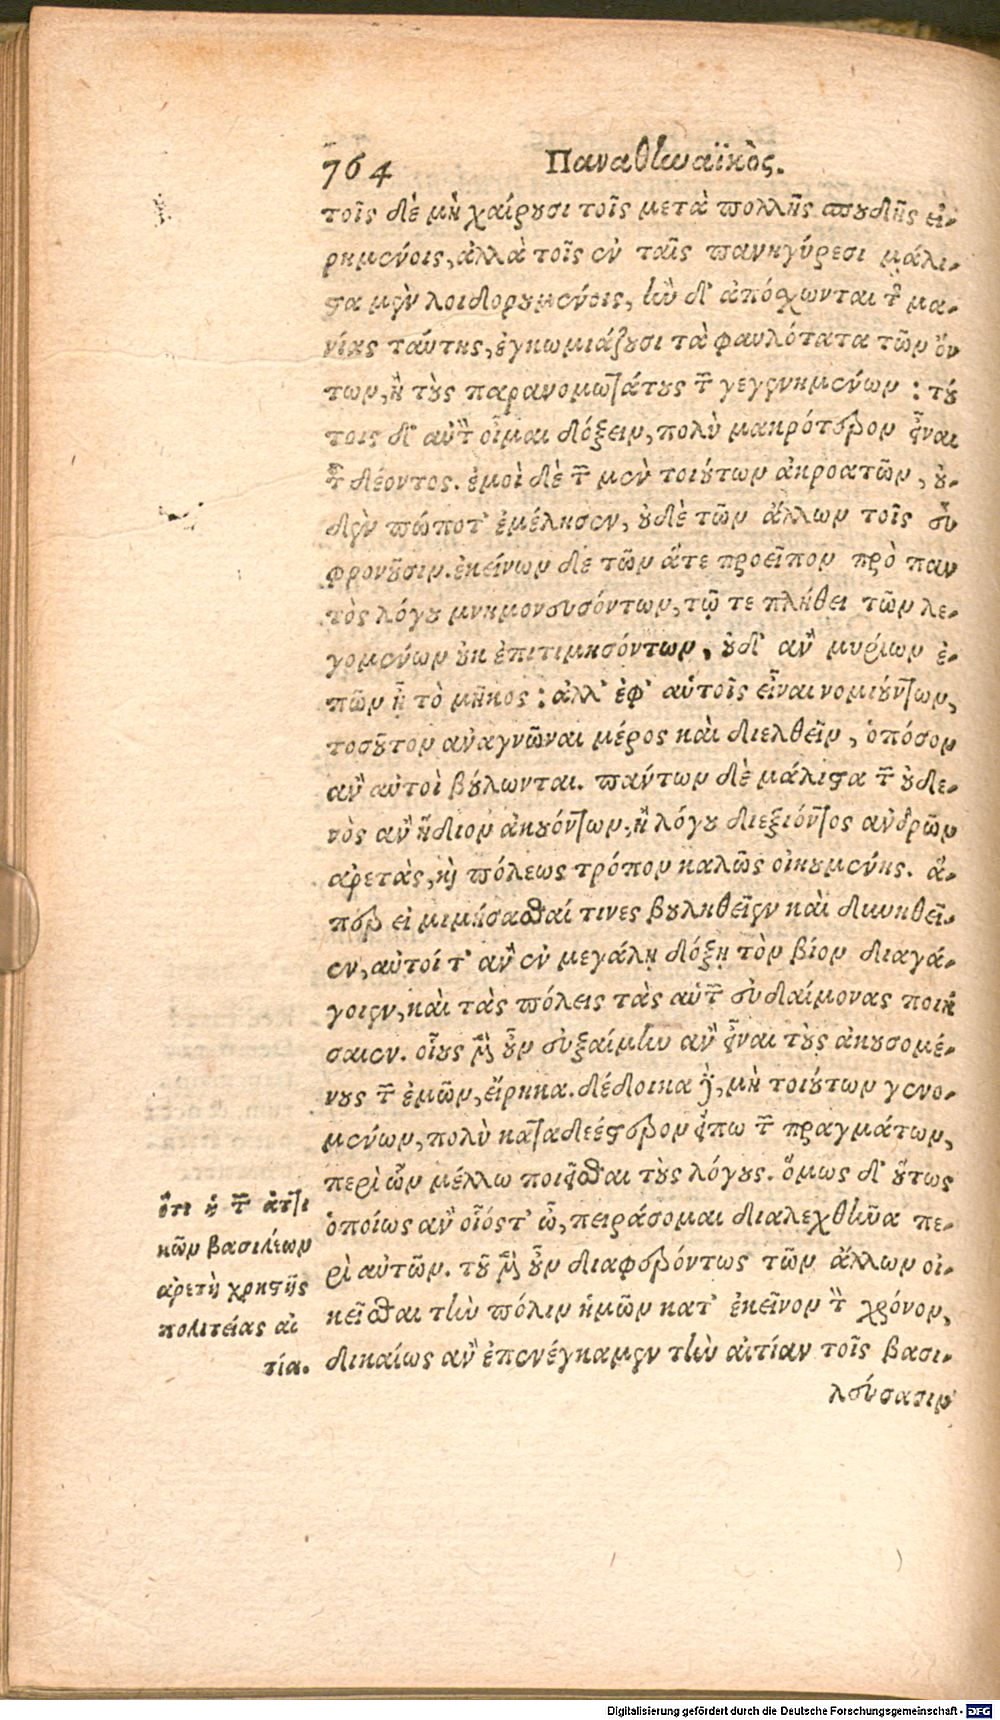 764 Παναθηναϊκὸς.
τοῖς δὲ μὴ χαίρουσι τοῖς μετὰ πολλῆς σπουδῆς εἰ-
ρημένοις, ἀλλὰ τοῖς ἐν ταῖς πανηγύρεσι μάλι-
στα μὲν λοιδορουμένοις, ἢν δ' ἀπόσχωνται τῆς μα-
νίας ταύτης, ἐγκωμιάζουσι τὰ φαυλότατα τῶν ὄν
των, ἢ τοὺς παρανομωτάτους τῶν γεγενημένων: τού
τοις δ' αὐτὸν οἶμαι δόξειν, πολὺ μακρότερον εἶναι
τοῦ δέοντος. ἐμοὶ δὲ τῶν μὲν τοιούτων ἀκροατῶν, οὐ-
δὲν πώποτ' ἐμέλησεν, οὐδὲ τῶν ἄλλων τοῖς εὖ
φρονοῦσιν. ἐκείνων δε τῶν ἅτε προεῖπον πρὸ παν
τὸς λόγου μνημονευσόντων, τῷ τε πλήθει τῶν λε-
γομένων οὐκ ἐπιτιμησόντων, οὐδ' ἂν μυρίων ἐ-
πῶν ᾖ τὸ μῆκος: ἀλλ' ἐφ' αὑτοῖς εἶναι νομιούντων,
τοσοῦτον ἀναγνῶναι μέρος καὶ διελθεῖν, ὁπόσον
ἂν αὐτοὶ βούλωνται. πάντων δὲ μάλιστα τῶν οὐδε-
νὸς ἂν ἥδιον ἀκουόντων, ἢ λόγου διεξιόντος ἀνδρῶν
ἀρετὰς, καὶ πόλεως τρόπον καλῶς οἰκουμένης. ἅ-
περ εἰ μιμήσασθαί τινες βουληθεῖεν καὶ δυνηθεῖ-
εν, αὐτοί τ' ἂν ἐν μεγάλῃ δόξῃ τὸν βίον διαγά-
γοιεν, καὶ τὰς πόλεις τὰς αὑτῶν εὐδαίμονας ποιή
σαιεν. οἵους μὲν οὖν εὐξαίμην ἂν εἶναι τοὺς ἀκουσομέ-
νους τῶν ἐμῶν, εἴρηκα. δέδοικα δὲ, μὴ τοιούτων γενο-
μένων, πολὺ καταδεέστερον εἴπω τῶν πραγμάτων,
περὶ ὧν μέλλω ποιεῖσθαι τοὺς λόγους. ὅμως δ' οὕτως
ὁποίως ἂν οἷός τ' ὦ, πειράσομαι διαλεχθῆναι πε-
ρὶ αὐτῶν. τοῦ μὲν οὖν διαφερόντως τῶν ἄλλων οἰ-
κεῖσθαι τὴν πόλιν ἡμῶν κατ' ἐκεῖνον τὸν χρόνον,
δικαίως ἂν ἐπενέγκαμεν τὴν αἰτίαν τοῖς βασι-
λεύσασιν
ὅτι ἡ τῶν ἀττι
κῶν βασιλέων
ἀρετὴ χρηστῆς
πολιτείας αἰ
τία.
Digitalisierung gefördert durch die Deutsche Forschungsgemeinschaft - DFG